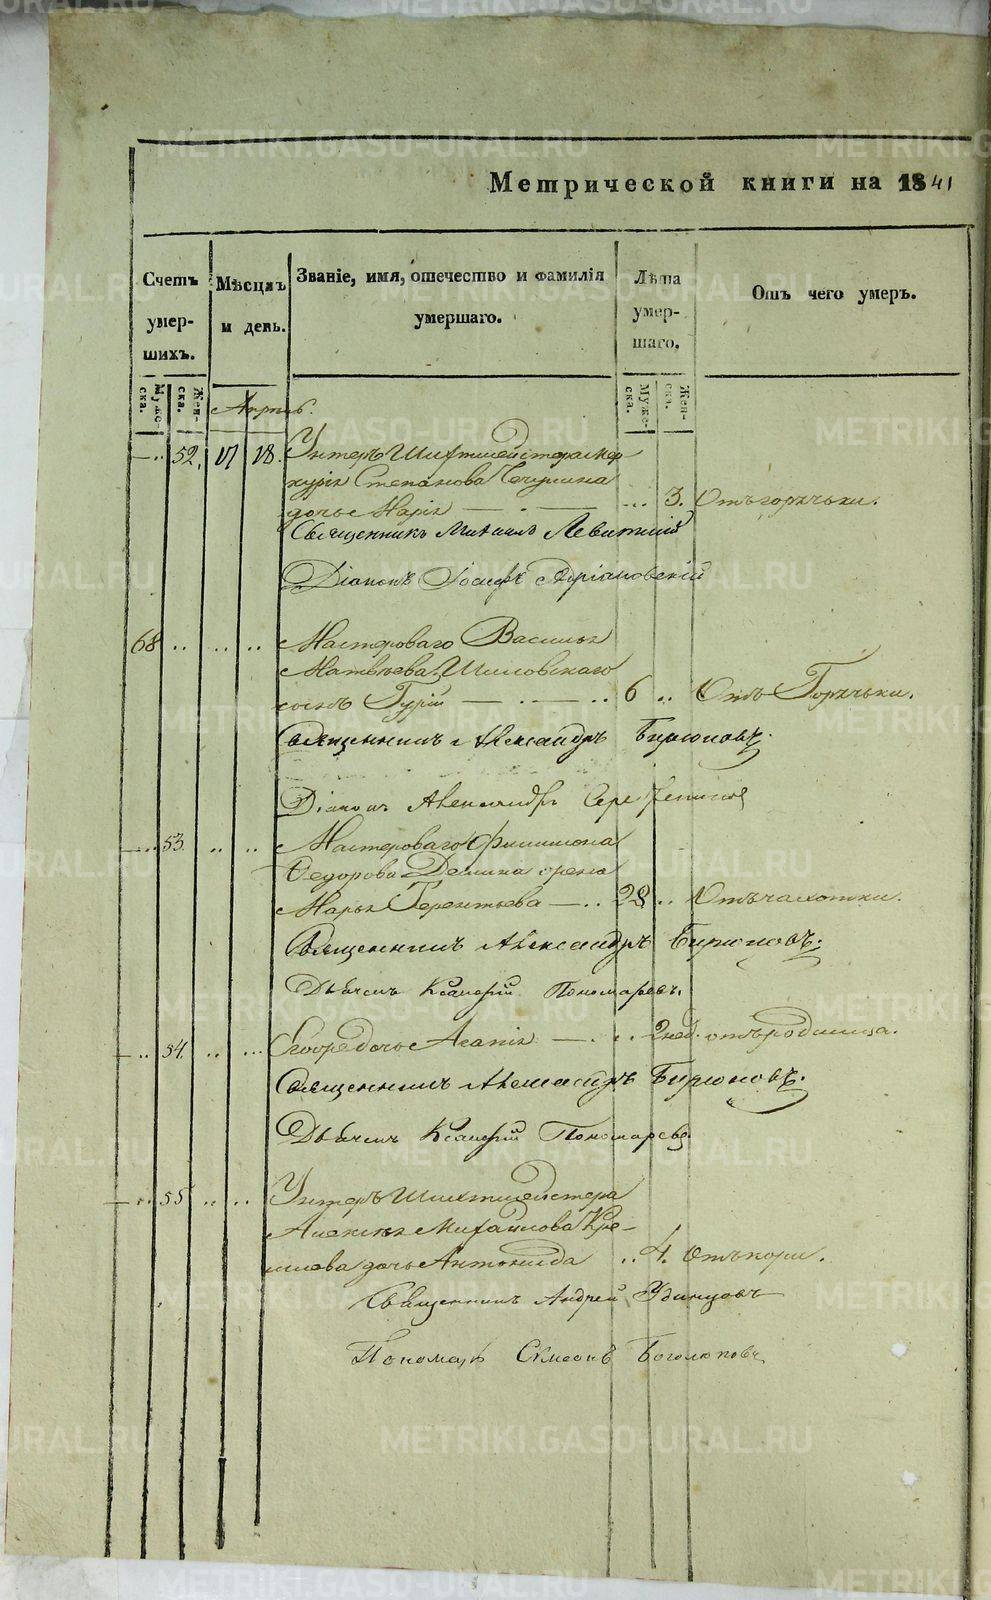 Метрической книги на 1841
Счетъ умершихъ.
Мѣсяцъ и день.
Званіе, имя, отечество и фамилія умершаго.
Лѣта умершаго.
Отъ чего умеръ.
Муже-ска.
Жен-ска.
Муже-ска.
Жен-ска.
Апрѣль.
52. 17 18. Унтеръ Шихтмейстера Мер-
курія Степанова
дочь Марія 3. Отъ горячьки.
Священникъ Михаилъ Левитскій
Діаконъ Іосифъ Адріановскій
68 Мастероваго Василья
Матвѣева Шиловскаго
сынъ Гурій 6 Отъ Горячьки.
Священникъ Александръ Бирюковъ.
Діаконъ Александръ
53. Мастероваго Филимона
Ѳедорова Демина жена
Марья Терентьева 28 Отъ чахотки.
Священникъ Александръ Бирюковъ.
Дьячекъ Ксенофій Пономаревъ.
54. Егоже дочь Агапія 2 нед. отъ родимца.
Священникъ Александръ Бирюковъ.
Дьячекъ Ксенофій Пономаревъ
55 Унтеръ Шихтмейстера
Алексѣя Михайлова
дочь Антонида 4. Отъ кори.
Священникъ Андрей Удинцовъ
Пономарь Симеонъ Боголюбовъ
METRIKI.GASO-URAL.RU